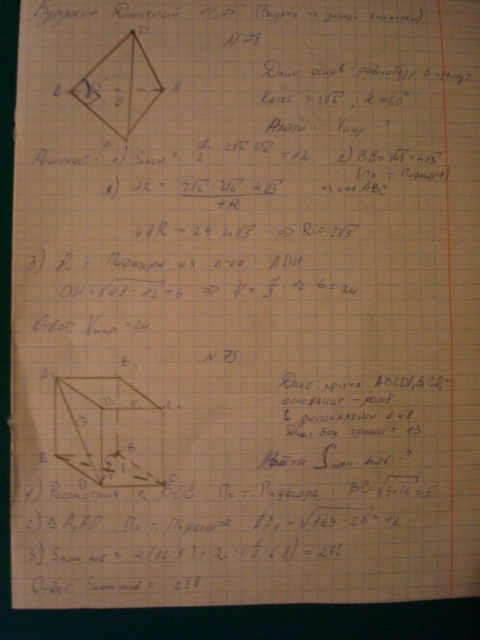 Дмитрий 11 (Задачи
N 78
Дано: основ - равнобедр
Катет = 2√6, = 60°
Найти: Vпир - ?
Решение: 1) Sосн = 1/2 · 2√6 · 2√6 = 12
2) BC = √48 = 4√3
(По т. Пифагора)
из ABC
2) 12 = 2√6 · 2√6 · 4√3 / 4R
48R = 24 · 4√3 => R = 2√3
3) По т. Пифагора из ADH
DH = √48 - 12 = 6 => V = 1/3 · 12 · 6 = 24
Ответ: Vпир = 24
N 79
Дано: призма ABCDA₁B₁C₁D₁ -
основание - ромб
с диагоналями 6 и 8
Диаг бок грани = 13
Найти Sполн. пов - ?
1) Рассмотрим △ BOC. По т. Пифагора BC = √9+16 = 5
2) △ A₁AD. По т. Пифагора AA₁ = √169-25 = 12
3) Sполн пов = 4(12·5) + 2 · (1/2 · 6 · 8) = 288
Ответ: Sполн пов = 288